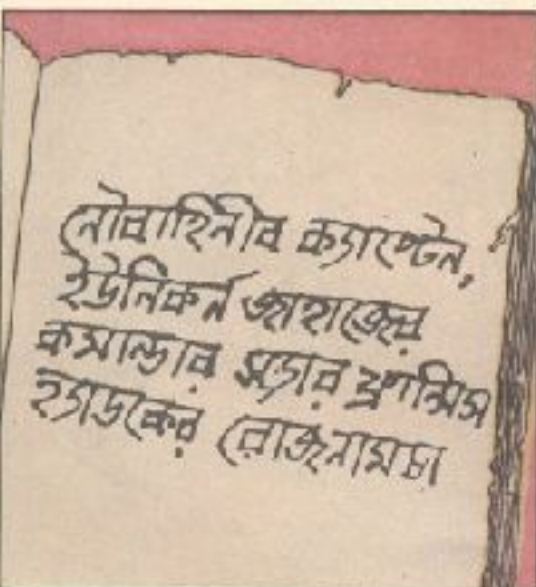 নৌবাহিনীর ক্যাপ্টেন,
ইউনিকর্ন জাহাজের
কমান্ডার স্যার ফ্রান্সিস
হ্যাডকের রোজনামচা